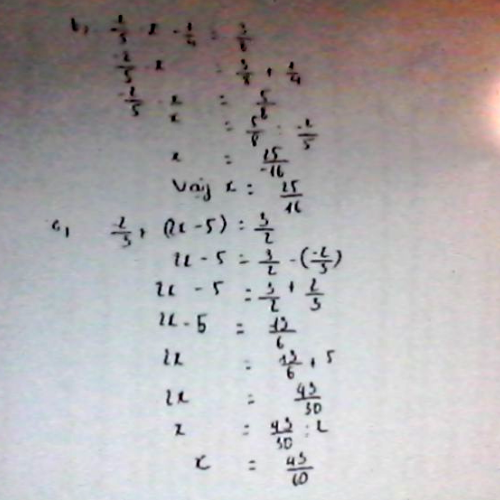 b, -2/5 . x - 1/4 = 3/8
-2/5 . x = 3/8 + 1/4
-2/5 . x = 5/8
x = 5/8 : -2/5
x = 25/-16
Vậy x = 25/16
c, -2/3 + (2x - 5) = 3/2
2x - 5 = 3/2 - (-2/3)
2x - 5 = 3/2 + 2/3
2x - 5 = 13/6
2x = 13/6 + 5
2x = 43/30
x = 43/30 : 2
x = 43/60